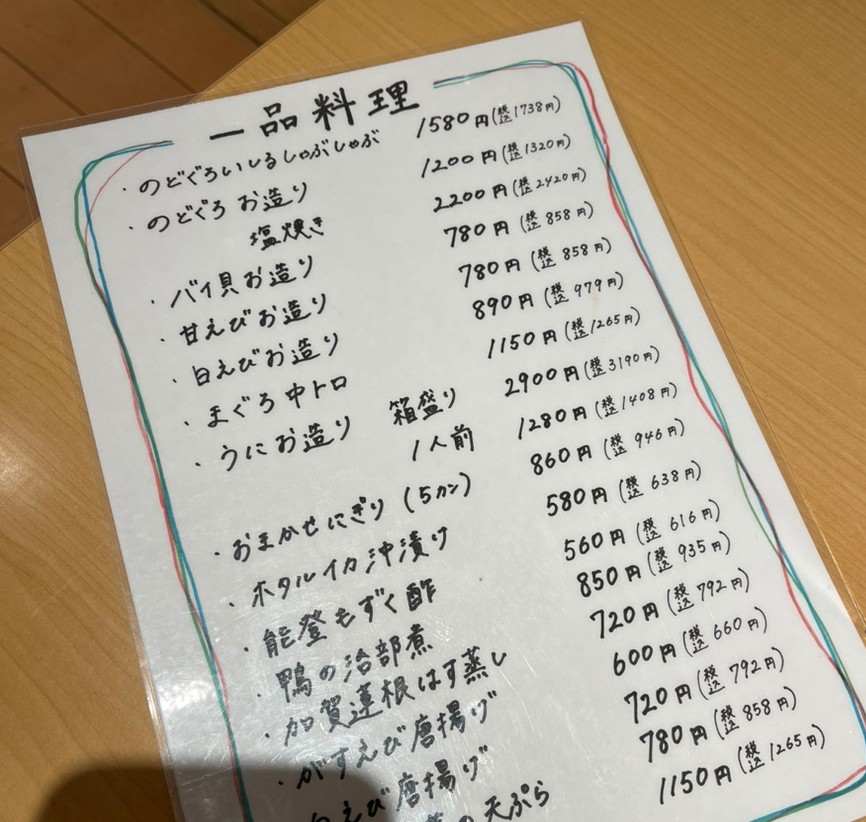 一品料理
・のどぐろいしるしゃぶしゃぶ 1580円(税込1738円)
・のどぐろ お造り 1200円(税込1320円)
塩焼き 2200円(税込2420円)
・バイ貝お造り 780円(税込858円)
・甘えびお造り 780円(税込858円)
・白えびお造り 890円(税込979円)
・まぐろ中トロ 1150円(税込1265円)
・うにお造り 箱盛り 2900円(税込3190円)
1人前 1280円(税込1408円)
・おまかせにぎり(5カン) 860円(税込946円)
・ホタルイカ沖漬け 580円(税込638円)
・能登もずく酢 560円(税込616円)
・鴨の治部煮 850円(税込935円)
・加賀蓮根はす蒸し 720円(税込792円)
・がすえび唐揚げ 600円(税込660円)
白えび唐揚げ 720円(税込792円)
の天ぷら 780円(税込858円)
1150円(税込1265円)